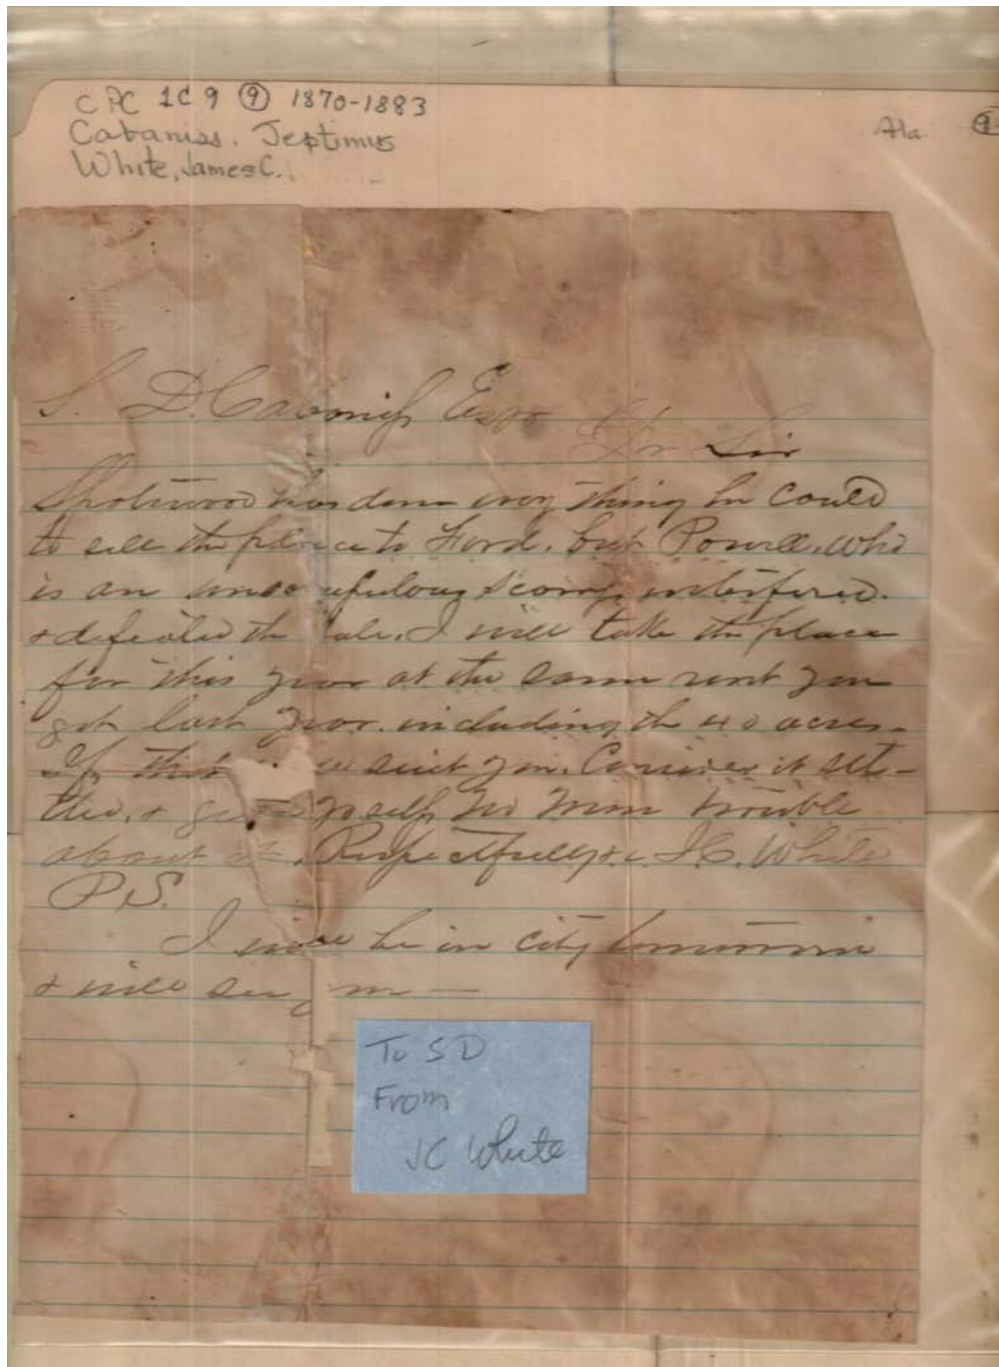 CPC 1C9 (9) 1870-1883
Cabaniss, Septimus
White, James C.
Ala. 9
S. D. Cabaniss Esqr
Dr Sir
Spotswood has done every thing he could
to sell the place to Ford, but Powell, who
is an unscrupulous scamp interfered.
& defeated the sale. I will take the place
for this year at the same rent you
got last year. including the 40 acres.
If this suit you, Consider it set-
tled, & yrself no more trouble
about it. Respectfully &c J.C. White
P.S.
I will be in city tomorrow
& will see
To SD
From
JC White